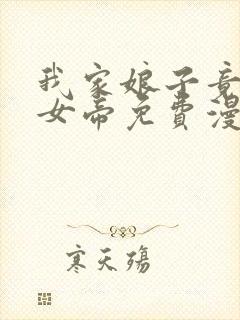 我家娘子竟
女帝免費漫
寒天殤